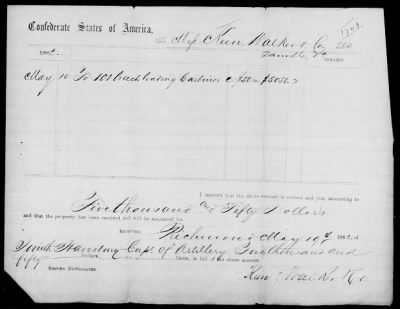 Confederate States of America,
To Keen Walker & Co Dr.
1862. Danville, Va
DOLLARS.
May 10 To 101 breech loading Carbines @ $50 $5050
I CERTIFY that the above account is correct and just, amounting to
Five thousand and Fifty Dollars
and that the property has been received and will be accounted for
RECEIVED, Richmond May 19th 1862, of
Smith Stansbury Capt. of Artillery Five thousand and
fifty Dollars, Cents, in full of the above account.
SIGNED DUPLICATES. Keen Walker & Co